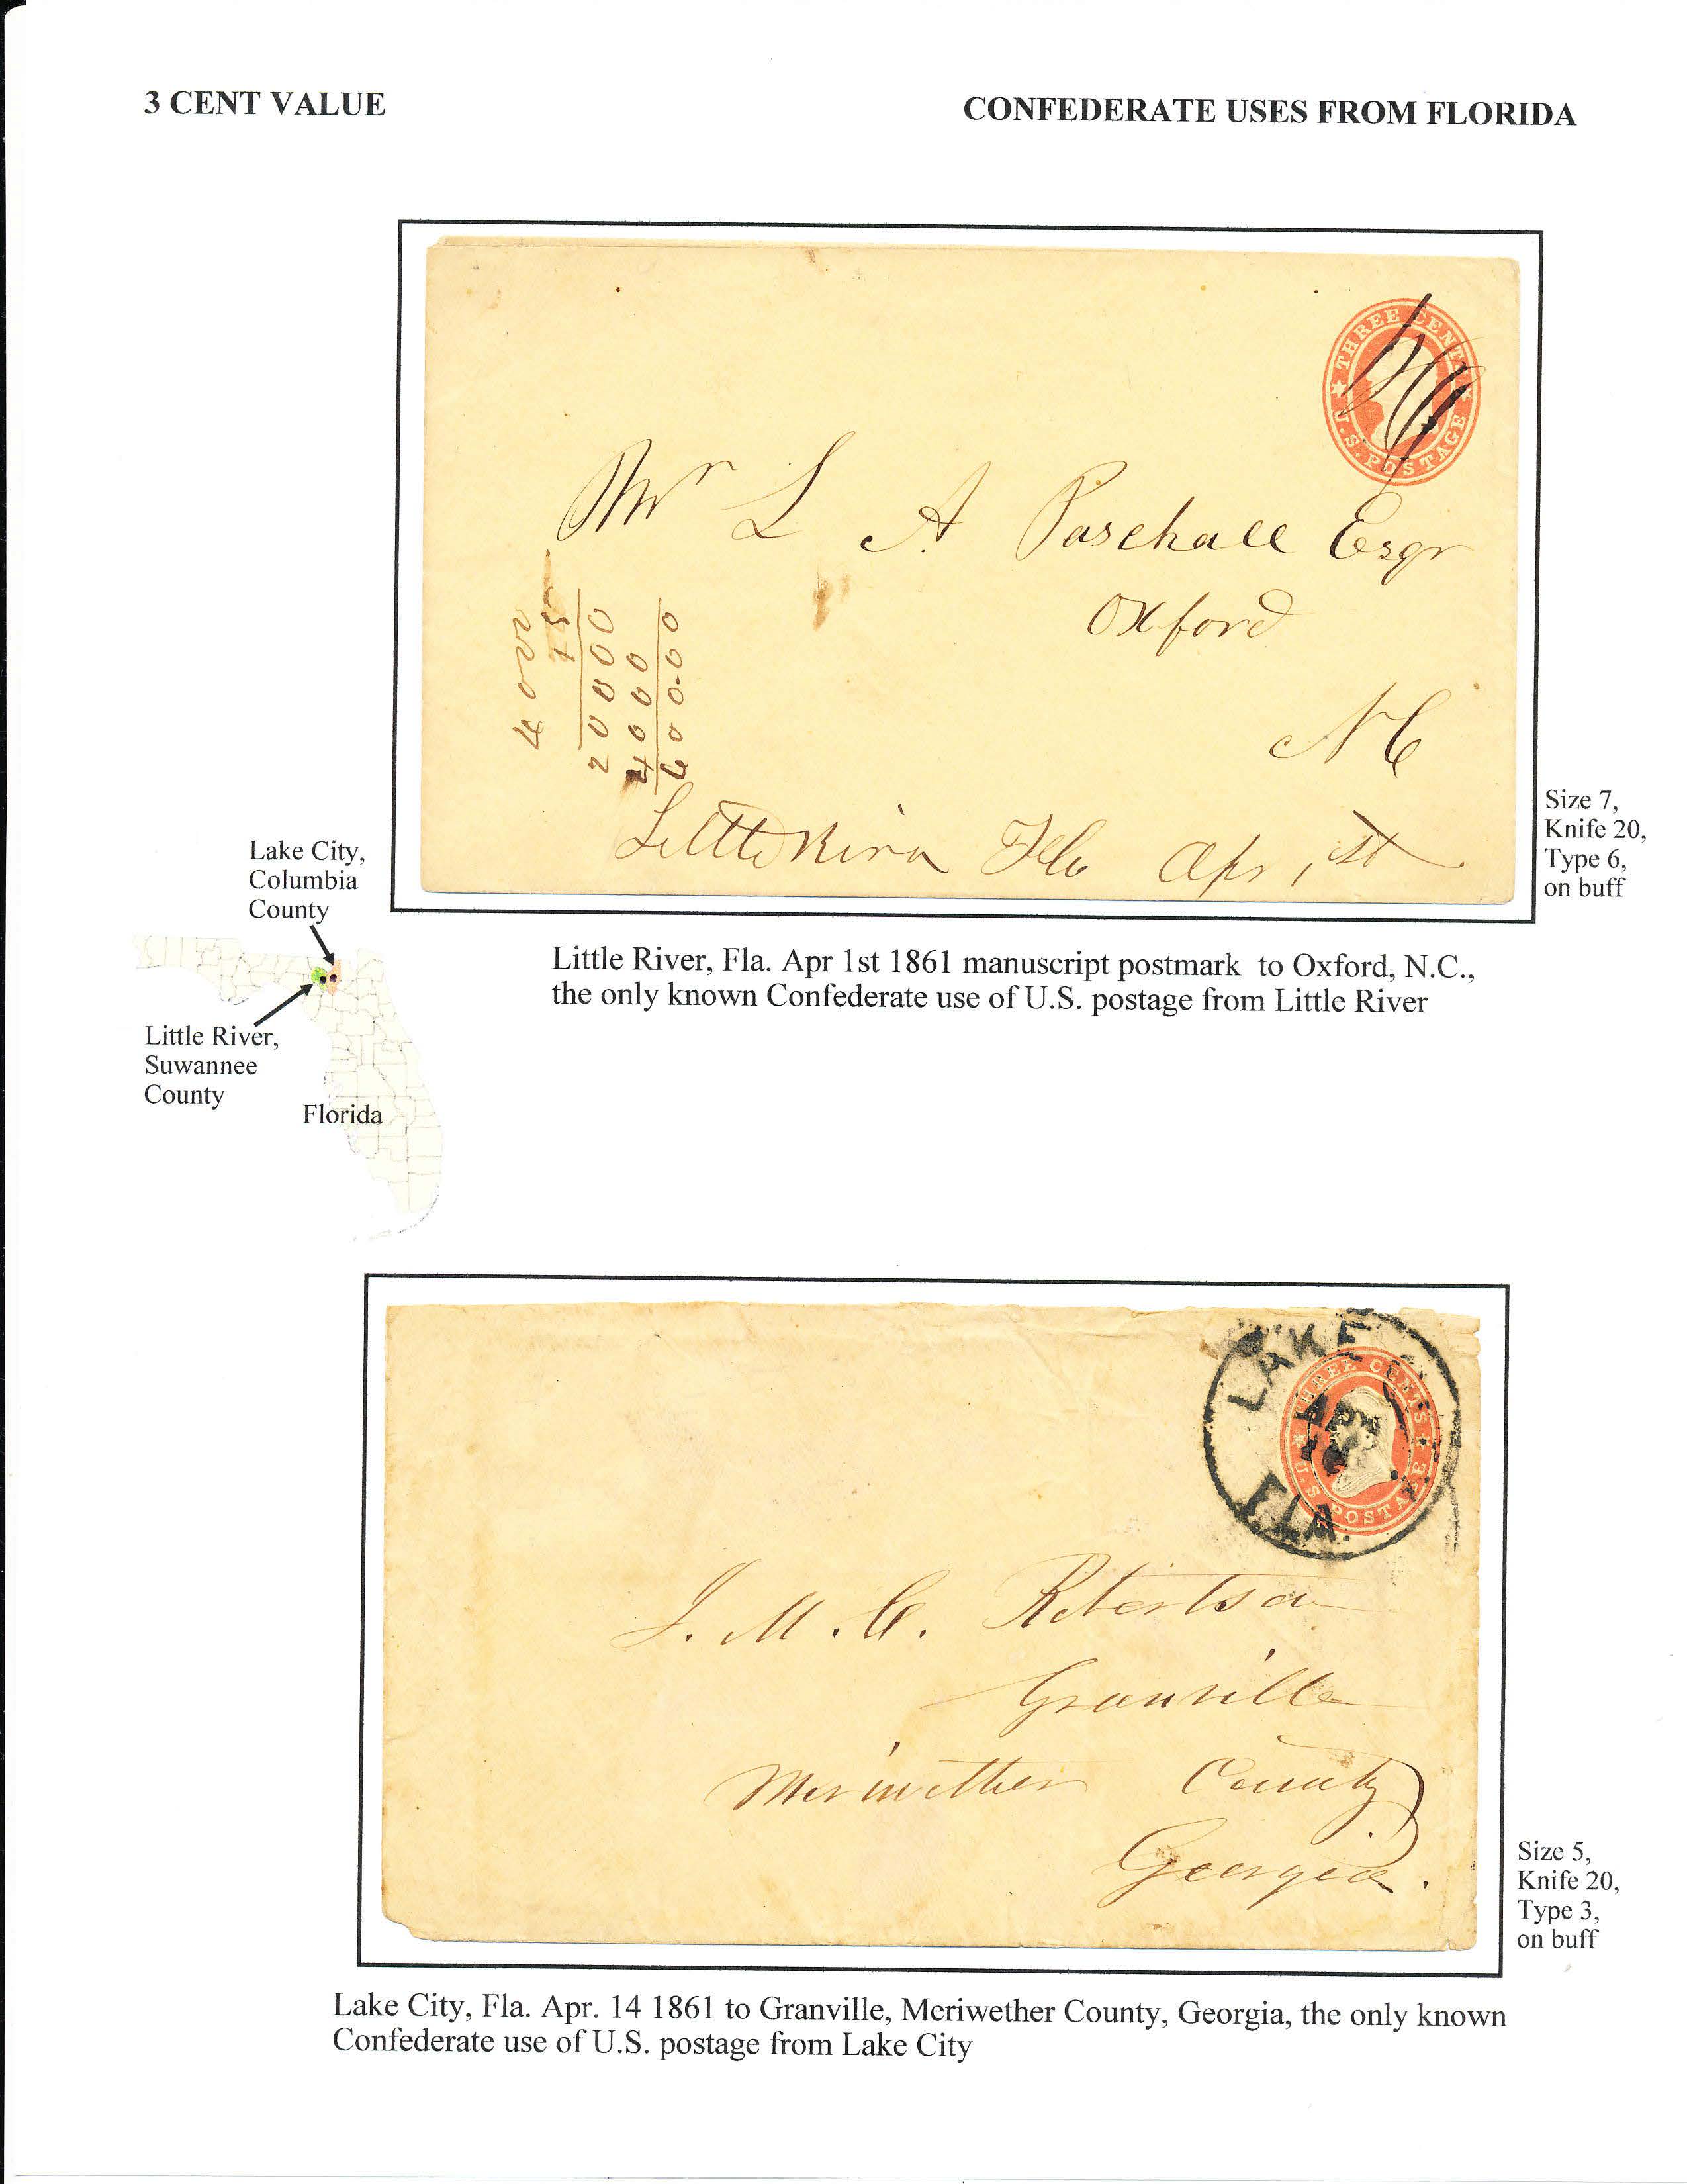 3 CENT VALUE
CONFEDERATE USES FROM FLORIDA
THREE CENTS
U.S. POSTAGE
Mr L A Paschall Esqr
Oxford
NC
4000
15
20000
4000
600.00
Little River Fla Apr 1st
Size 7,
Knife 20,
Type 6,
on buff
Little River, Fla. Apr 1st 1861 manuscript postmark to Oxford, N.C.,
the only known Confederate use of U.S. postage from Little River
Lake City,
Columbia
County
Little River,
Suwannee
County
Florida
LAKE
APR
FLA.
THREE CENTS
U.S. POSTAGE
J. M. C. Robertson
Granville
Meriwether County
Georgia.
Size 5,
Knife 20,
Type 3,
on buff
Lake City, Fla. Apr. 14 1861 to Granville, Meriwether County, Georgia, the only known
Confederate use of U.S. postage from Lake City